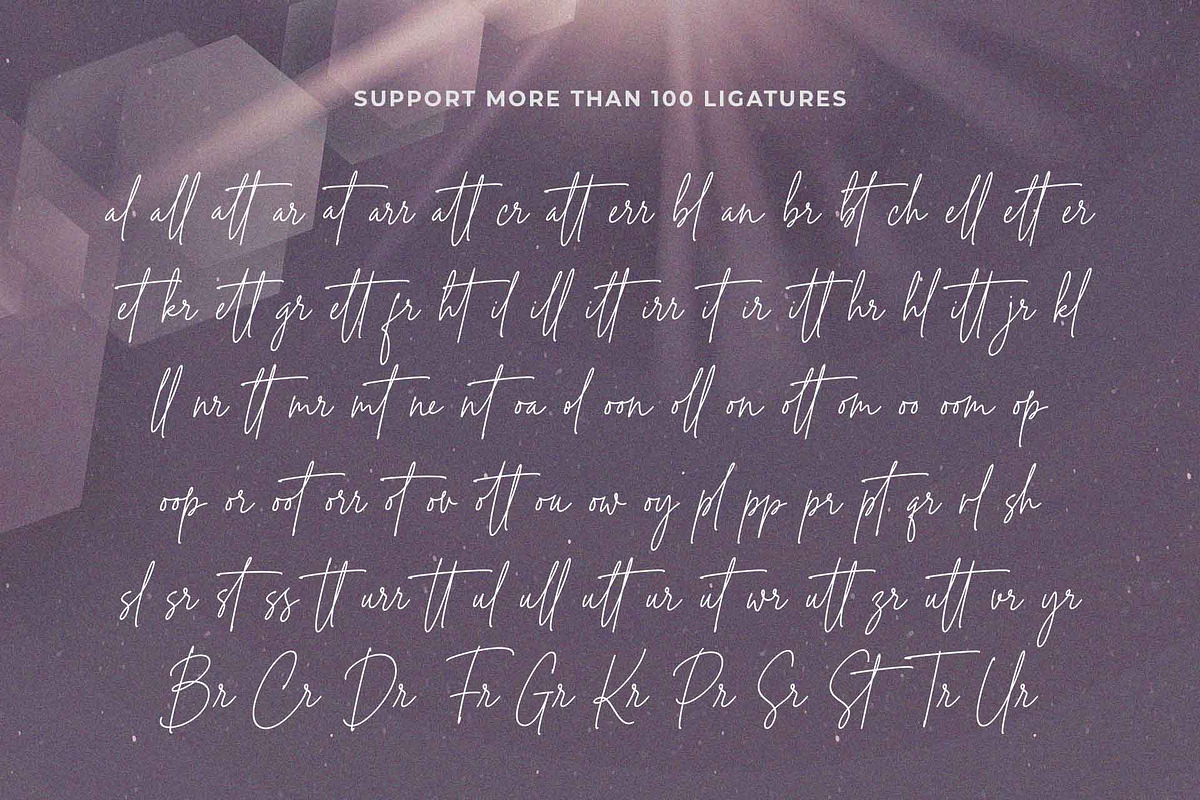 SUPPORT MORE THAN 100 LIGATURES
al all att ar at arr att cr att err bl an br bt ch ell ett er
et kr ett gr ett fr ht il ill itt irr it ir itt hr hl itt jr kl
ll nr tt mr mt ne nt oa ol oon oll on ott om oo oom op
oop or oot orr ot ov ott ou ow oy pl pp pr pt qr rl sh
sl sr st ss tl urr tt ul ull utt ur ut wr utt zr utt vr yr
Br Cr Dr Fr Gr Kr Pr Sr St Tr Ur